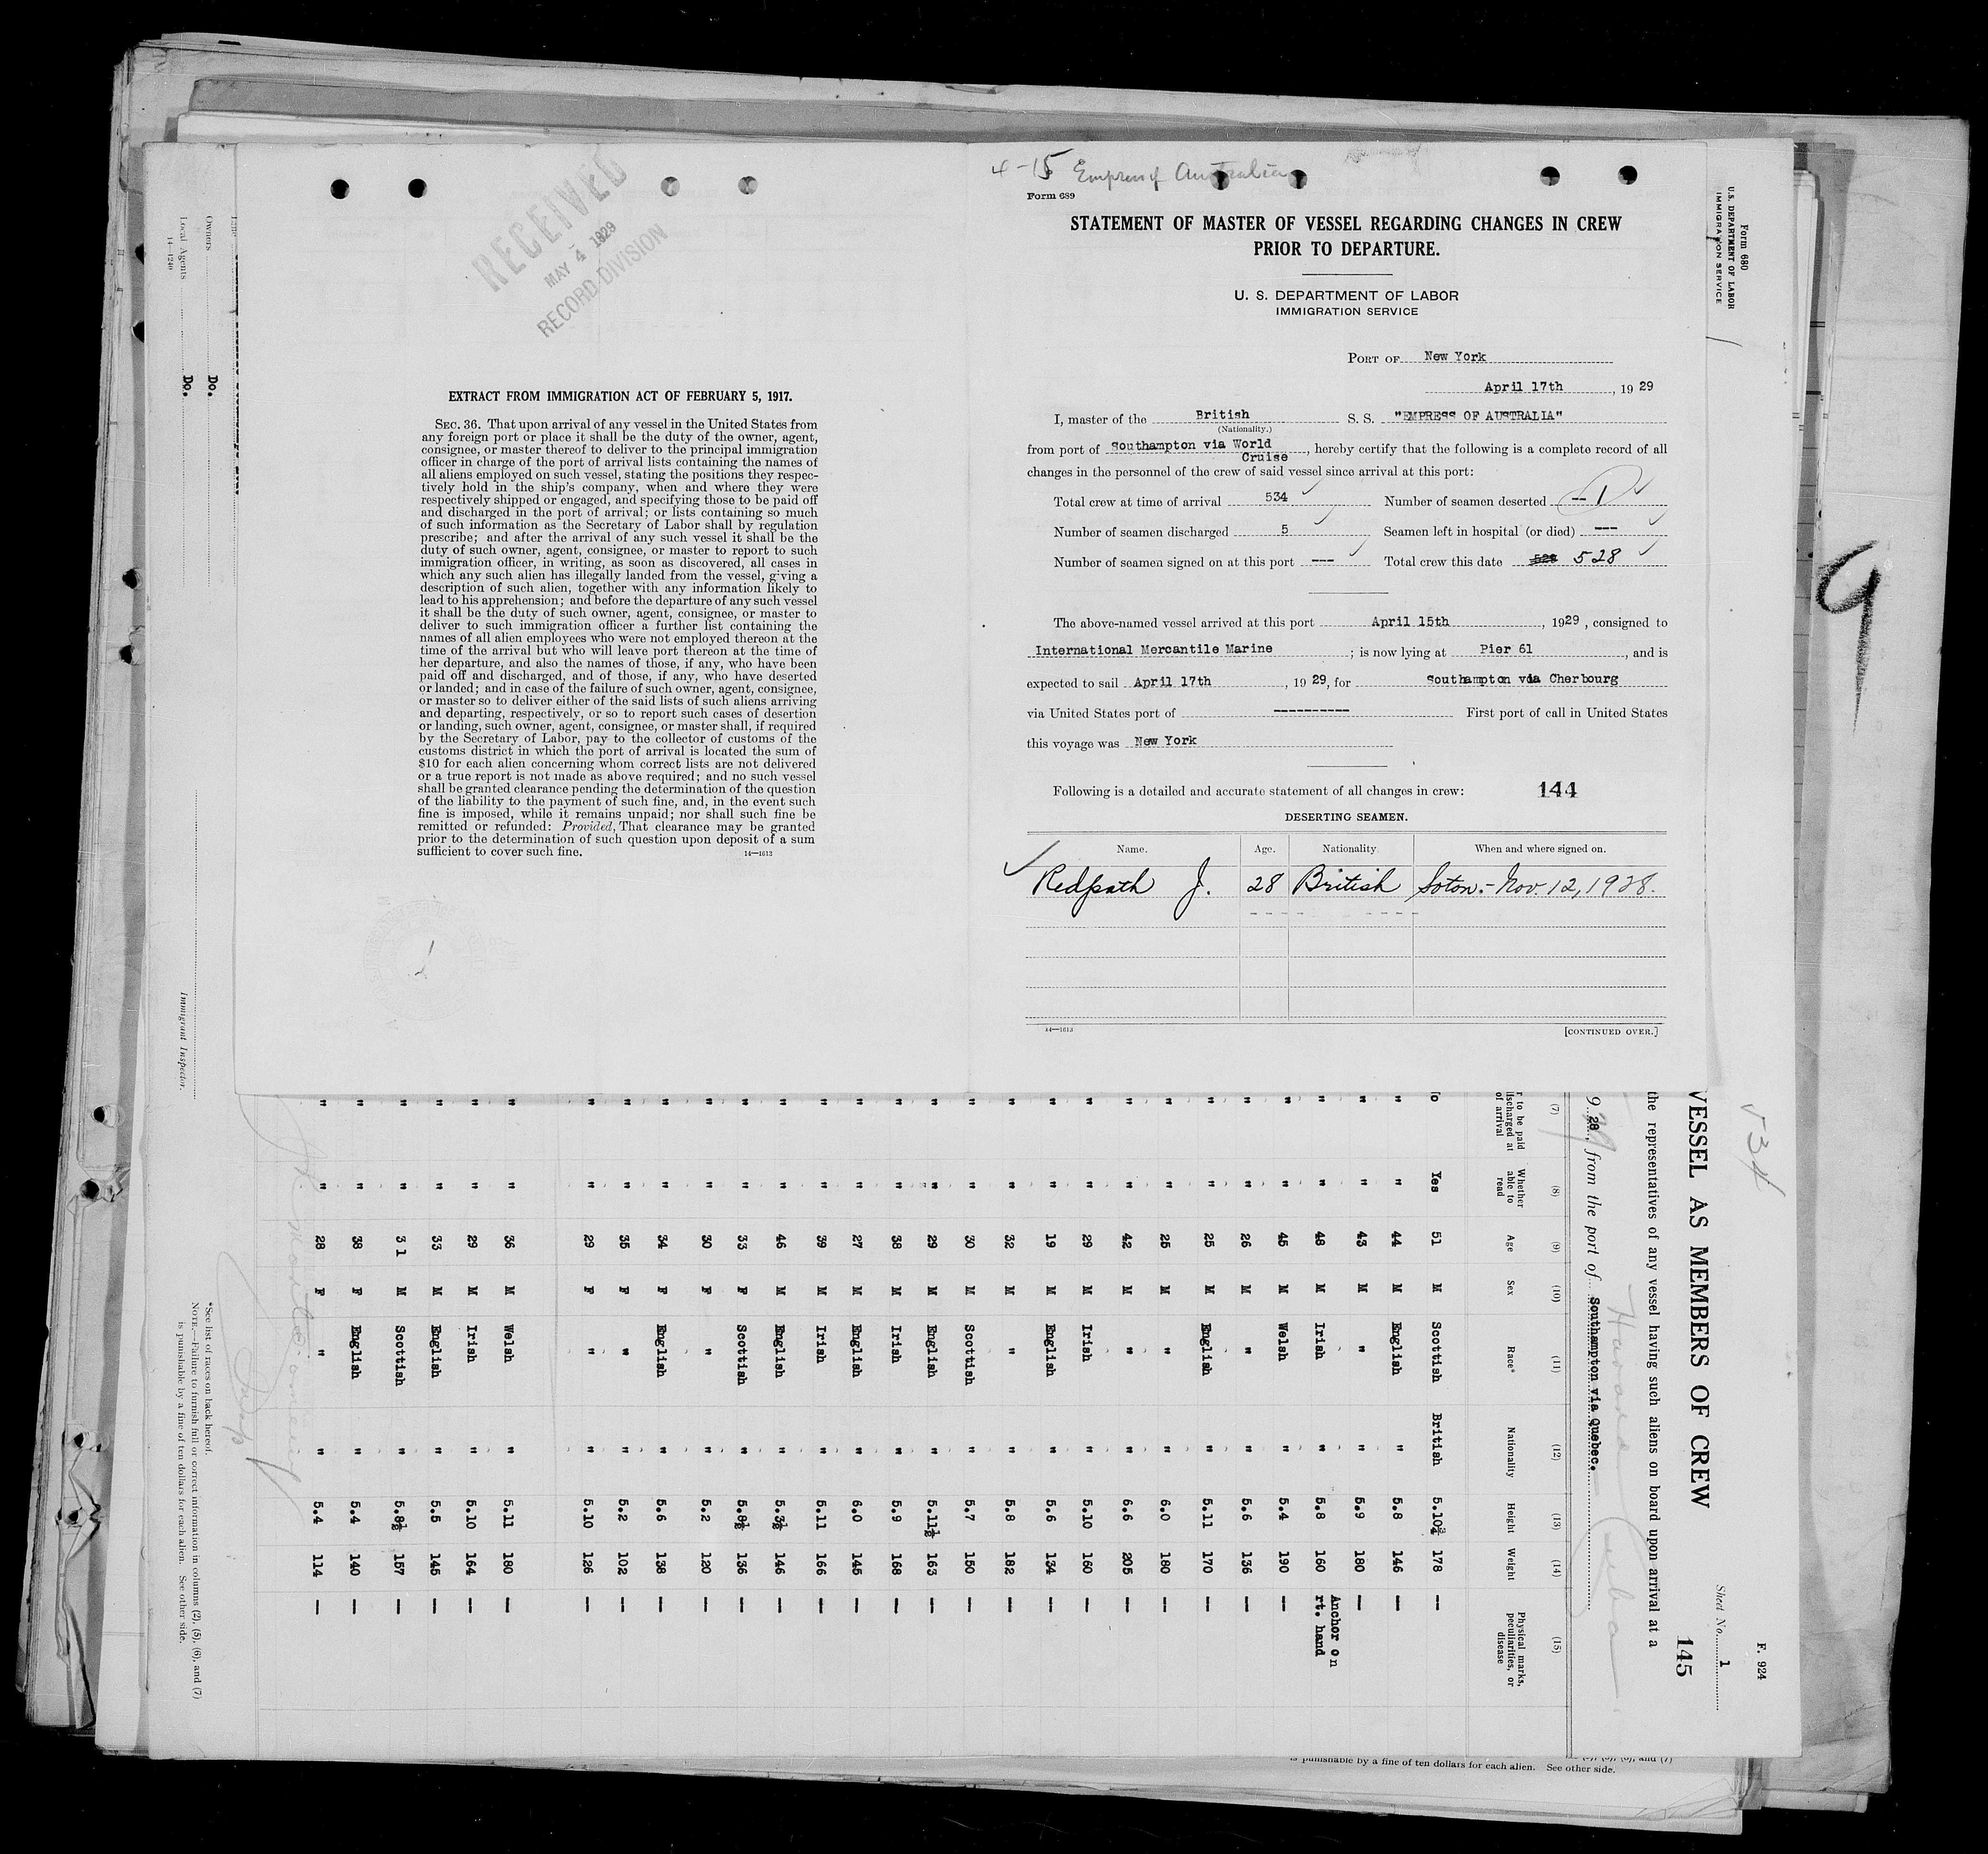 RECEIVED
MAY 4 1929
RECORD DIVISION
EXTRACT FROM IMMIGRATION ACT OF FEBRUARY 5, 1917.
SEC. 36. That upon arrival of any vessel in the United States from
any foreign port or place it shall be the duty of the owner, agent,
consignee, or master thereof to deliver to the principal immigration
officer in charge of the port of arrival lists containing the names of
all aliens employed on such vessel, stating the positions they respec-
tively hold in the ship's company, when and where they were
respectively shipped or engaged, and specifying those to be paid off
and discharged in the port of arrival; or lists containing so much
of such information as the Secretary of Labor shall by regulation
prescribe; and after the arrival of any such vessel it shall be the
duty of such owner, agent, consignee, or master to report to such
immigration officer, in writing, as soon as discovered, all cases in
which any such alien has illegally landed from the vessel, giving a
description of such alien, together with any information likely to
lead to his apprehension; and before the departure of any such vessel
it shall be the duty of such owner, agent, consignee, or master to
deliver to such immigration officer a further list containing the
names of all alien employees who were not employed thereon at the
time of the arrival but who will leave port thereon at the time of
her departure, and also the names of those, if any, who have been
paid off and discharged, and of those, if any, who have deserted
or landed; and in case of the failure of such owner, agent, consignee,
or master so to deliver either of the said lists of such aliens arriving
and departing, respectively, or so to report such cases of desertion
or landing, such owner, agent, consignee, or master shall, if required
by the Secretary of Labor, pay to the collector of customs of the
customs district in which the port of arrival is located the sum of
$10 for each alien concerning whom correct lists are not delivered
or a true report is not made as above required; and no such vessel
shall be granted clearance pending the determination of the question
of the liability to the payment of such fine, and, in the event such
fine is imposed, while it remains unpaid; nor shall such fine be
remitted or refunded: Provided, That clearance may be granted
prior to the determination of such question upon deposit of a sum
sufficient to cover such fine. 14—1613
4-15 Empress of Australia
Form 689
STATEMENT OF MASTER OF VESSEL REGARDING CHANGES IN CREW
PRIOR TO DEPARTURE.
U. S. DEPARTMENT OF LABOR
IMMIGRATION SERVICE
PORT OF New York
April 17th, 1929
I, master of the British S. S. "EMPRESS OF AUSTRALIA"
(Nationality.)
from port of Southampton via World Cruise, hereby certify that the following is a complete record of all
changes in the personnel of the crew of said vessel since arrival at this port:
Total crew at time of arrival 534 Number of seamen deserted --1
Number of seamen discharged 5 Seamen left in hospital (or died) ---
Number of seamen signed on at this port --- Total crew this date 528
The above-named vessel arrived at this port April 15th, 1929, consigned to
International Mercantile Marine; is now lying at Pier 61, and is
expected to sail April 17th, 1929, for Southampton via Cherbourg
via United States port of ---------- First port of call in United States
this voyage was New York
Following is a detailed and accurate statement of all changes in crew: 144
DESERTING SEAMEN.
Name. Age. Nationality. When and where signed on.
Redpath J. 28 British Soton.-Nov. 12, 1928.
14—1613 [CONTINUED OVER.]
9
Form 680
U. S. DEPARTMENT OF LABOR
IMMIGRATION SERVICE
534
F. 924
Sheet No. 1
145
VESSEL AS MEMBERS OF CREW
the representatives of any vessel having such aliens on board upon arrival at a
Havana Cuba
928, from the port of Southampton via Quebec.
(7) (8) (9) (10) (11) (12) (13) (14) (15)
r to be paid
discharged at
of arrival
Whether
able to
read
Age Sex Race* Nationality Height Weight
Physical marks,
peculiarities, or
disease
Yes 51 M Scottish British 5.10¾ 178 —
" " 44 M English " 5.8 146 —
" " 43 M " " 5.9 180 —
" " 48 M Irish " 5.8 160 Anchor on rt. hand
" " 45 M Welsh " 5.4 190 —
" " 26 M " " 5.6 136 —
" " 25 M English " 5.11 170 —
" " 25 M " " 6.0 180 —
" " 42 M " " 6.6 205 —
" " 29 M Irish " 5.10 160 —
" " 19 M English " 5.6 134 —
" " 32 M " " 5.8 182 —
" " 30 M Scottish " 5.7 150 —
" " 29 M English " 5.11½ 163 —
" " 38 M Irish " 5.9 168 —
" " 27 M English " 6.0 145 —
" " 39 M Irish " 5.11 166 —
" " 46 M English " 5.3½ 146 —
" " 33 F Scottish " 5.8½ 136 —
" " 30 F " " 5.2 120 —
" " 34 F English " 5.6 138 —
" " 35 F " " 5.2 102 —
" " 29 F " " 5.10 126 —
" " 36 M Welsh " 5.11 180 —
" " 29 M Irish " 5.10 164 —
" " 33 M English " 5.5 145 —
" " 31 M Scottish " 5.8½ 157 —
" " 38 F English " 5.4 140 —
" " 28 F " " 5.4 114 —
Owners Do.
Local Agents Do.
14—1240
Immigrant Inspector.
*See list of races on back hereof.
NOTE.—Failure to furnish full or correct information in columns (2), (5), (6), and (7)
is punishable by a fine of ten dollars for each alien. See other side.
is punishable by a fine of ten dollars for each alien. See other side.